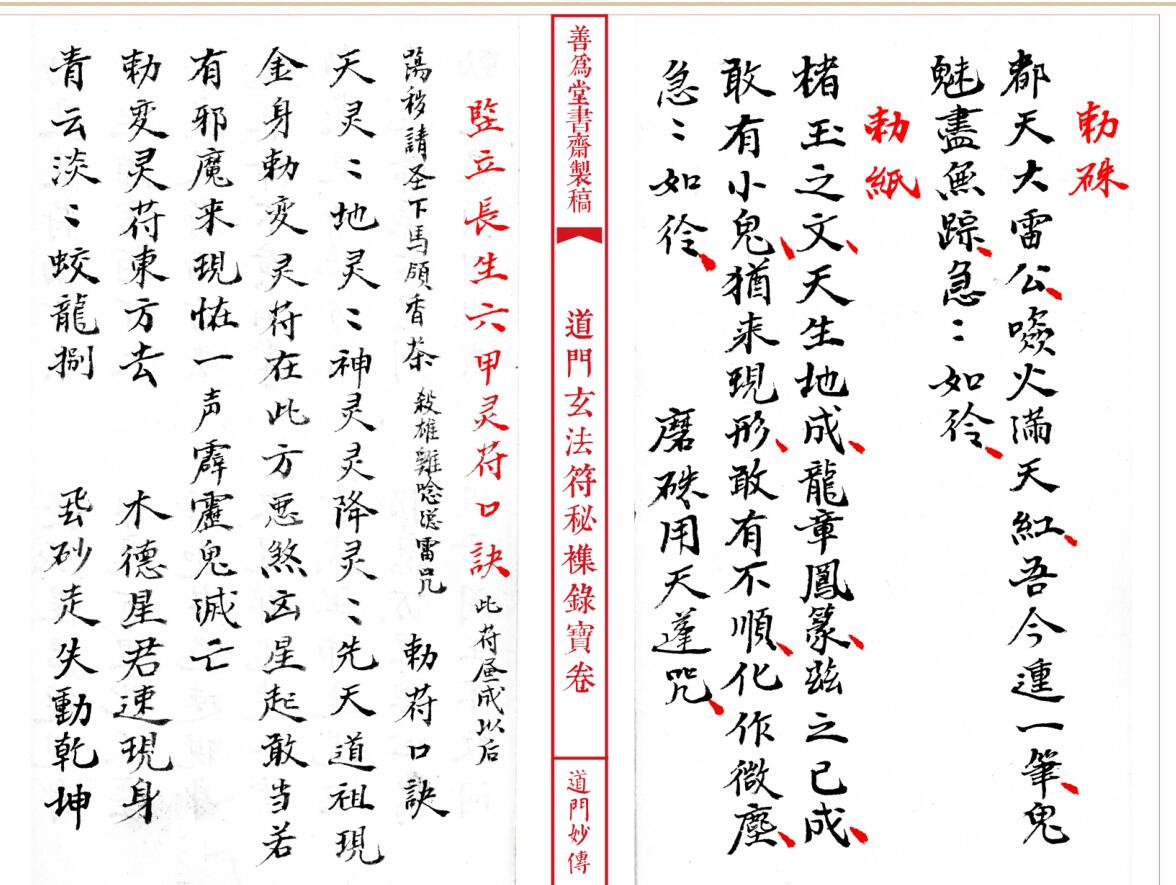 勅硃
都天大雷公噀火滿天紅吾今連一筆鬼
魅盡無踪急〻如彾
勅紙
楮玉之文天生地成龍章鳳篆玆之已成
敢有小鬼猶来現形敢有不順化作微塵
急〻如彾 磨硃用天蓬咒
善爲堂書齋製稿
道門玄法符秘襍錄寶卷
道門妙傳
監立長生六甲灵符口訣 此符昼成以后
蕩秽請圣下馬頒香茶 殺雄雞唸 雷咒 勅符口訣
天灵〻地灵〻神灵灵降灵〻先天道祖現
金身勅变灵符在此方恶煞凶星起敢当若
有邪魔来現怪一声霹靂鬼滅亡
勅变灵符東方去 木德星君速現身
青云淡〻蛟龍捌 砂走失動乾坤